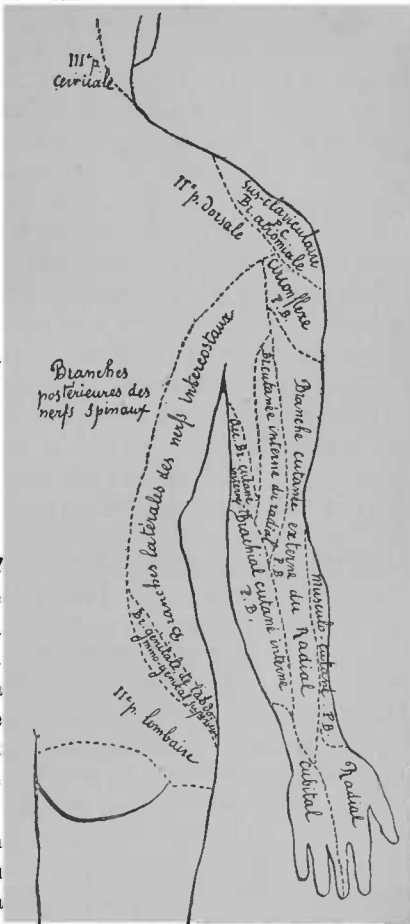 IIIe p.
cervicale
Sus-claviculaire
P.C.
Br. acromiale
IIe p. dorsale
Circonflexe
P.B.
Branches
postérieures des
nerfs spinaux
Branches latérales des nerfs Intercostaux
Br. cutanée interne du radial P.B.
Branche cutanée externe du Radial
Acc. Br. cutané
interne
Brachial cutané interne
P.B.
musculo cutané P.B.
Br. génitale de l'abdo-
mino-génital supérieur
IIe p. lombaire
Cubital
Radial